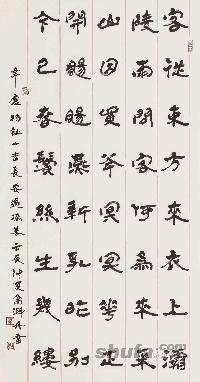 客從東方來衣上灞
陵雨問客何為來采
山因買斧冥冥花正
開颺颺燕新乳昨別
今已春鬢絲生幾縷
韋應物詩一首長安遇馮著壬辰仲夏